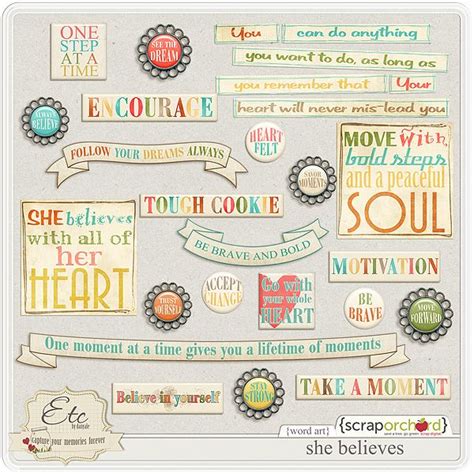 ONE
STEP
AT A
TIME
SEE THE
DREAM
You can do anything
you want to do, as long as
you remember that Your
heart will never mis-lead you
ALWAYS
BELIEVE
ENCOURAGE
HEART
FELT
FOLLOW YOUR DREAMS ALWAYS
SAVOR
MOMENTS
MOVE with
bold steps
and a peaceful
SOUL
SHE believes
with all of
her
HEART
TOUGH COOKIE
BE BRAVE AND BOLD
MOTIVATION
TRUST
YOURSELF
ACCEPT
CHANGE
Go with
your whole
HEART
BE
BRAVE
MOVE
FORWARD
One moment at a time gives you a lifetime of moments
Believe in yourself
STAY
STRONG
TAKE A MOMENT
Etc
by danyale
capture your memories forever
{word art}
{scraporchard}
she believes